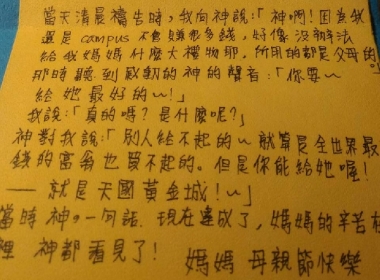 當天清晨禱告時,我向神說:「神啊!因為我
還是 campus 不會賺很多錢,好像沒辦法
給我媽媽什麼大禮物耶,所用的都是父母的
那時聽到感動的神的聲音:「你要~
給她最好的~!」
我說:「真的嗎?是什麼呢?」
神對我說:「別人給不起的~就算是全世界最
錢的富翁也買不起的。但是你能給她喔!
——就是天國黃金城!~」
當時神的一句話.現在達成了,媽媽的辛苦在
裡 神都看見了! 媽媽 母親節快樂